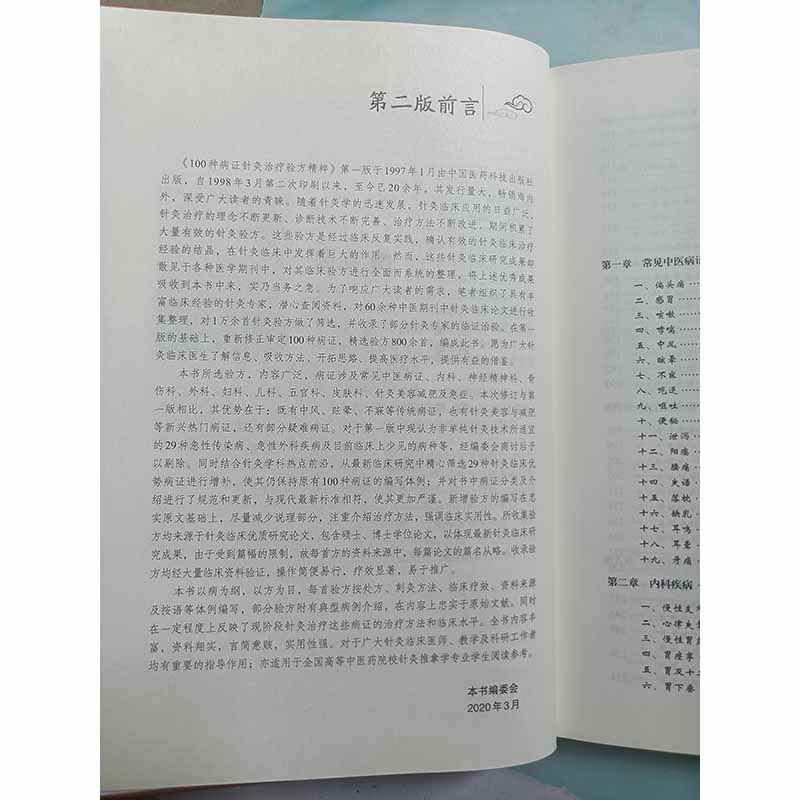 第二版前言
《100种病证针灸治疗验方精粹》第一版于1997年1月由中国医药科技出版社
出版，自1998年3月第二次印刷以来，至今已20余年，其发行量大，畅销海内
外，深受广大读者的青睐。随着针灸学的迅速发展，针灸临床应用的日益广泛，
针灸治疗的理念不断更新、诊断技术不断完善、治疗方法不断改进，期间积累了
大量有效的针灸验方。这些验方是经过临床反复实践，确认有效的针灸临床治疗
经验的结晶，在针灸临床中发挥着巨大的作用。然而，这些针灸临床研究成果却
散见于各种医学期刊中，对其临床验方进行全面而系统的整理，将上述优秀成果
吸收到本书中来，实乃当务之急。为了响应广大读者的需求，笔者组织了具有丰
富临床经验的针灸专家，潜心查阅资料，对60余种中医期刊中针灸临床论文进行收
集整理，对1万余首针灸验方做了筛选，并收录了部分针灸专家的临证治验。在第一
版的基础上，重新修正审定100种病证，精选验方800余首，编成此书。愿为广大针
灸临床医生了解信息、吸收方法、开拓思路、提高医疗水平，提供有益的借鉴。
本书所选验方，内容广泛，病证涉及常见中医病证、内科、神经精神科、骨
伤科、外科、妇科、儿科、五官科、皮肤科、针灸美容减肥及急症。本次修订与第一
版相比，其优势在于：既有中风、眩晕、不寐等传统病证，也有针灸美容与减肥
等新兴热门病证，还有部分疑难病证。对于第一版中现认为非单纯针灸技术所适宜
的29种急性传染病、急性外科疾病及目前临床上少见的病种等，经编委会商讨后予
以剔除。同时结合针灸学科热点前沿，从最新临床研究中精心筛选29种针灸临床优
势病证进行增补，使其仍保持原有100种病证的编写体例；并对书中病证分类及介
绍进行了规范和更新，与现代最新标准相符，使其更加严谨。新增验方的编写在忠
实原文基础上，尽量减少说理部分，注重介绍治疗方法，强调临床实用性。所收集验
方均来源于针灸临床优质研究论文，包含硕士、博士学位论文，以体现最新针灸临床研
究成果，由于受到篇幅的限制，故每首方的资料来源中，每篇论文的篇名从略。收录验
方均经大量临床资料验证，操作简便易行，疗效显著，易于推广。
本书以病为纲，以方为目，每首验方按处方、刺灸方法、临床疗效、资料来源
及按语等体例编写，部分验方附有典型病例介绍，在内容上忠实于原始文献。同时
在一定程度上反映了现阶段针灸治疗这些病证的治疗方法和临床水平。全书内容丰
富，资料翔实，言简意赅，实用性强。对于广大针灸临床医师、教学及科研工作者
均有重要的指导作用；亦适用于全国高等中医药院校针灸推拿学专业学生阅读参考。
本书编委会
2020年3月
第一章 常见中医病证
一、偏头痛
二、感冒
三、咳嗽
四、哮喘
五、中风
六、眩晕
七、不寐
八、呃逆
九、呕吐
十、便秘
十一、泄泻
十二、阳痿
十三、腰痛
十四、失语
十五、落枕
十六、缺乳
十七、耳鸣
十八、耳聋
十九、牙痛
第二章 内科疾病
一、慢性支
二、心律失
三、慢性胃
四、胃痉挛
五、胃及十二
六、胃下垂